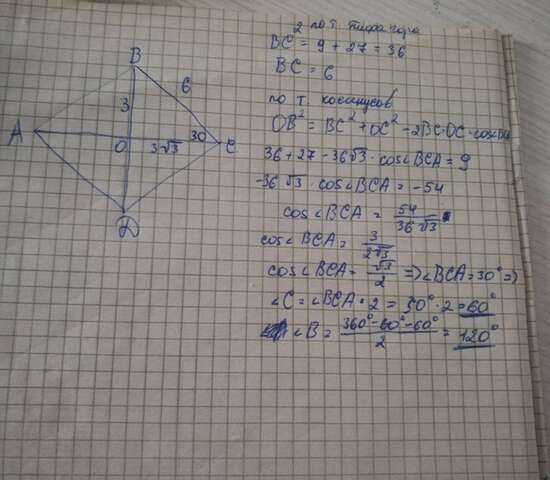 2 по т. пифагора
BC = 9 + 27 = 36
BC = 6
по т. косинусов
OB² = BC² + OC² - 2BC·OC·cos
36 + 27 - 36√3 · cos∠BCA = 9
-36√3 · cos∠BCA = -54
cos∠BCA = 54/36√3
cos∠BCA = 3/2√3
cos∠BCA = √3/2 => ∠BCA = 30° =>
∠C = ∠BCA · 2 = 30° · 2 = 60°
∠B = 360° - 60° - 60°/2 = 120°
B
6
3
A
O
3√3
30
C
D